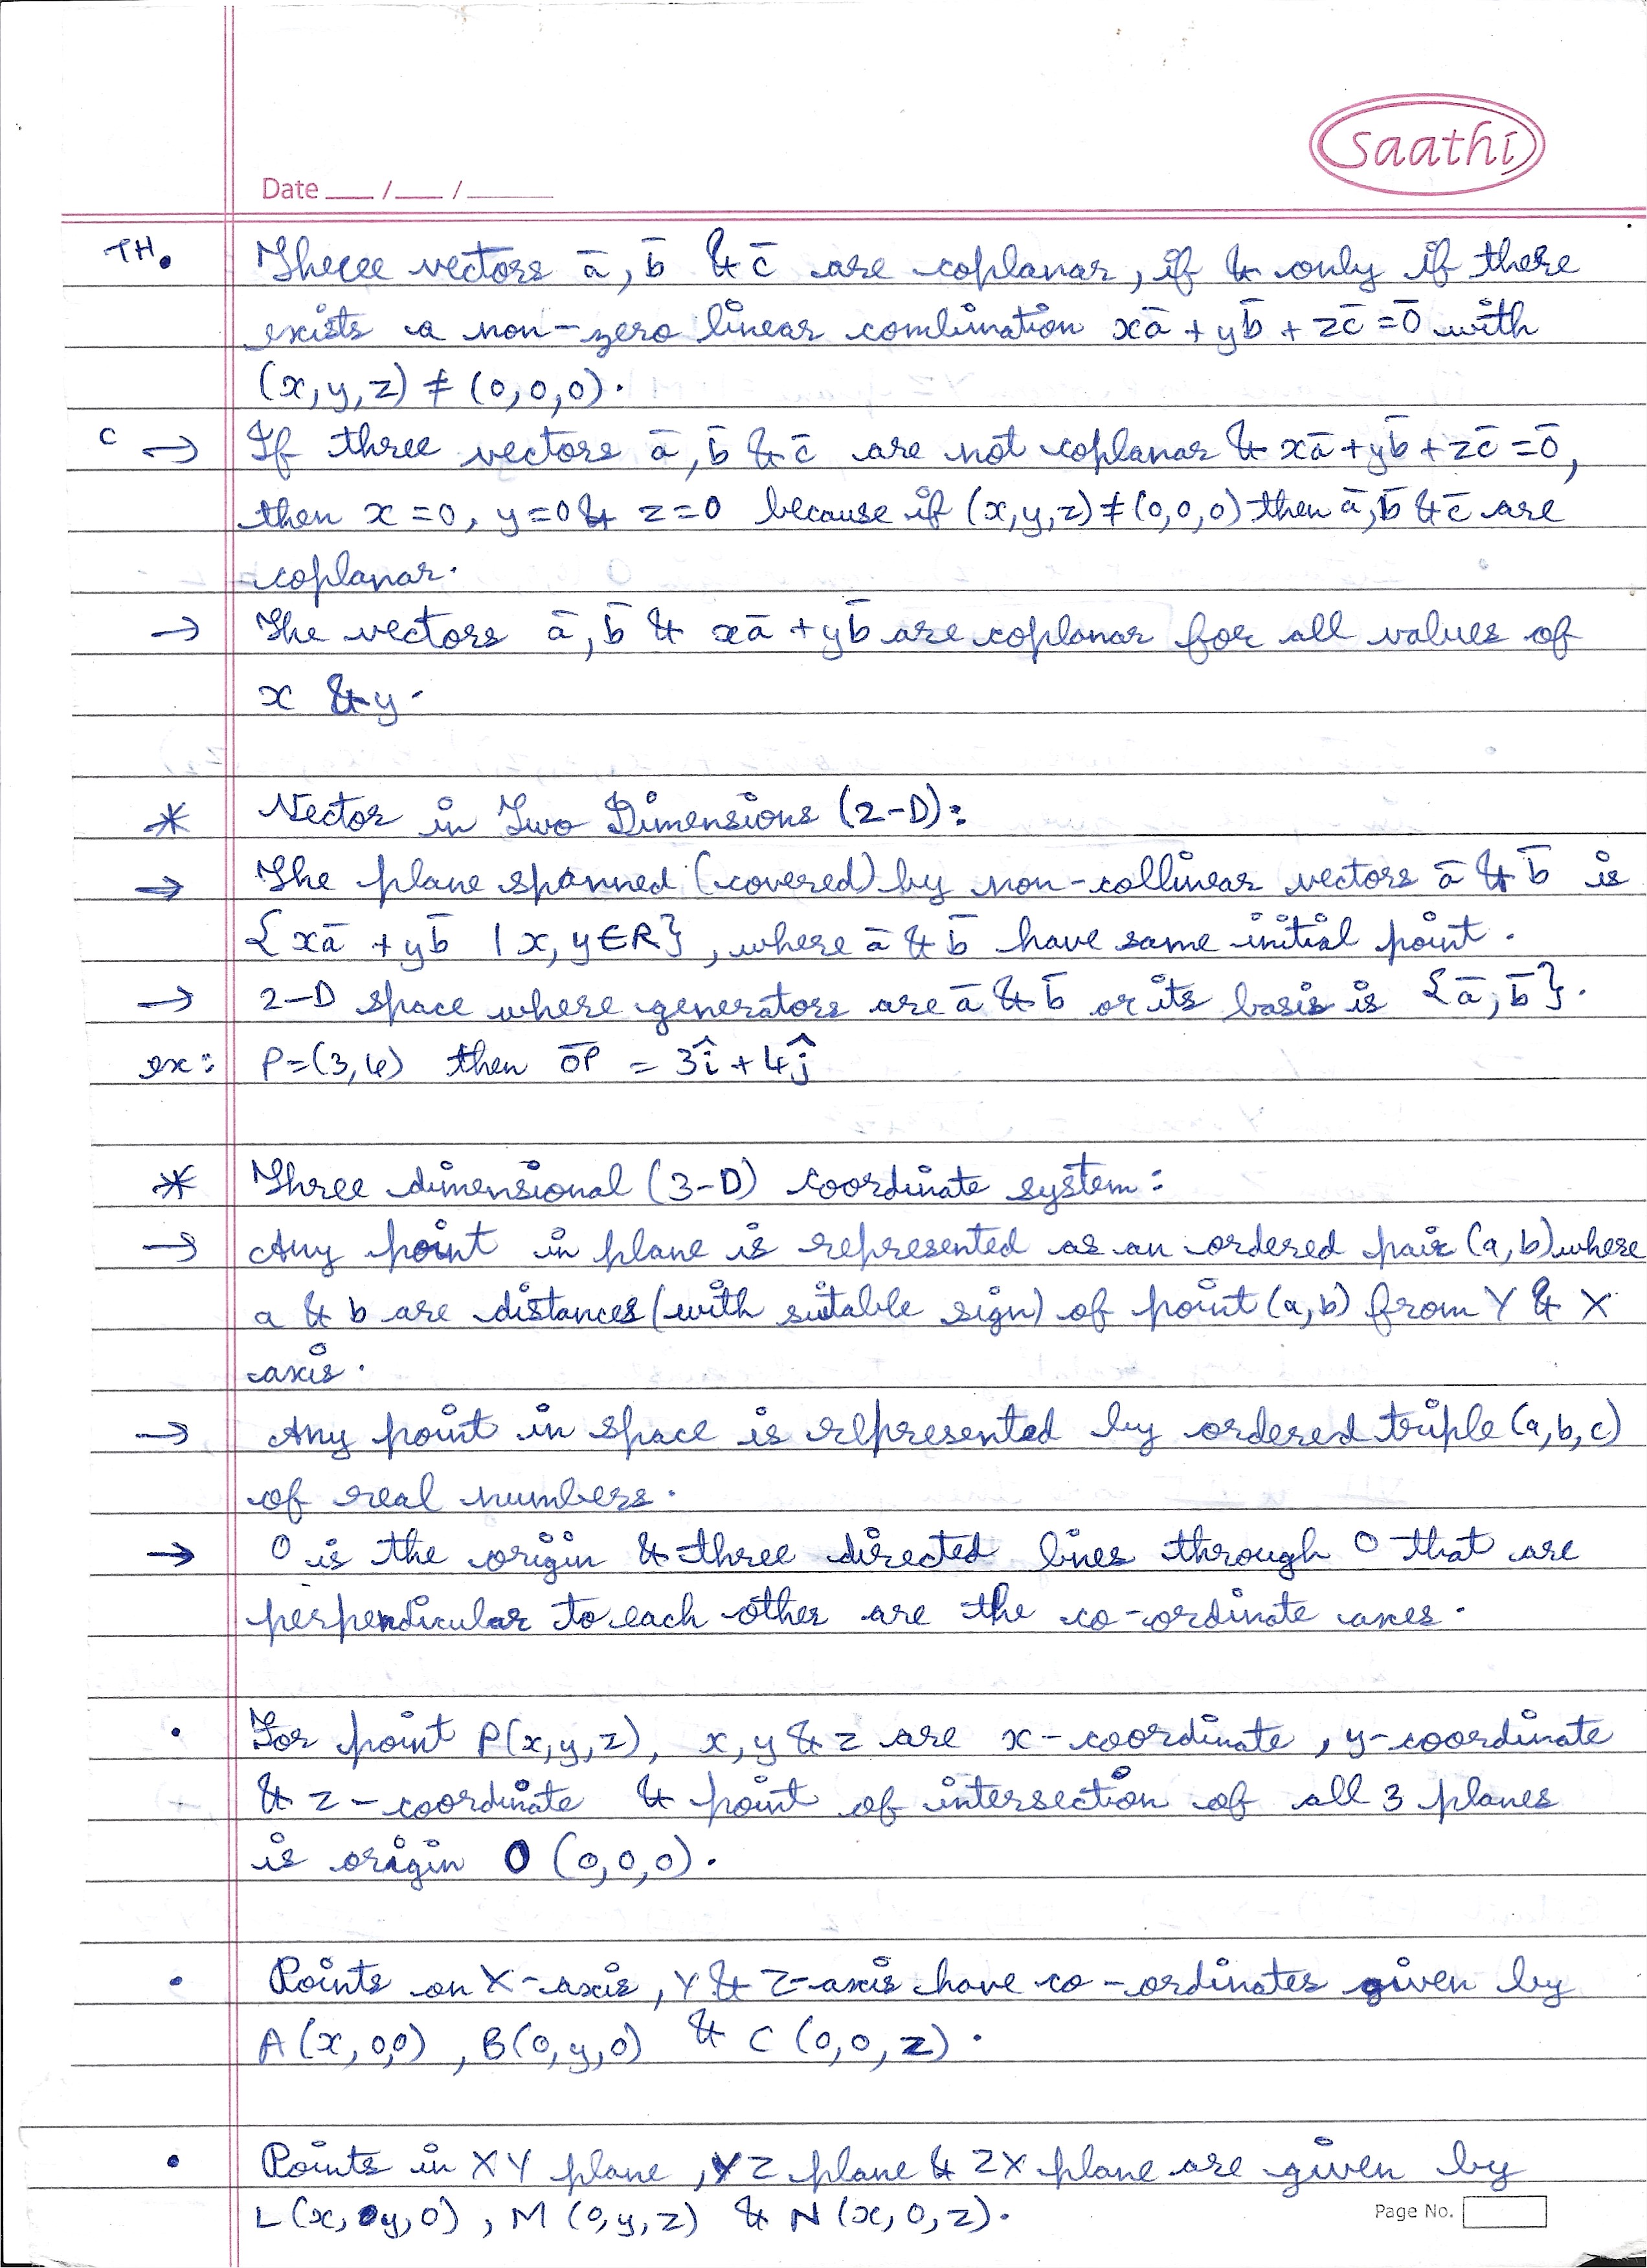 saathi
Date ___/___/_____
TH. Three vectors a̅, b̅ & c̅ are coplanar, if & only if there
exists a non-zero linear combination xa̅ + yb̅ + zc̅ = 0̅ with
(x, y, z) ≠ (0, 0, 0).
C → If three vectors a̅, b̅ & c̅ are not coplanar & xa̅ + yb̅ + zc̅ = 0̅,
then x = 0, y = 0 & z = 0 because if (x, y, z) ≠ (0, 0, 0) then a̅, b̅ & c̅ are
coplanar.
→ The vectors a̅, b̅ & xa̅ + yb̅ are coplanar for all values of
x & y.
* Vector in Two Dimensions (2-D):
→ The plane spanned (covered) by non-collinear vectors a̅ & b̅ is
{xa̅ + yb̅ | x, y ∈ R}, where a̅ & b̅ have same initial point.
→ 2-D space where generators are a̅ & b̅ or its basis is {a̅, b̅}.
ex: P = (3, 4) then O̅P̅ = 3î + 4ĵ
* Three dimensional (3-D) coordinate system:
→ Any point in plane is represented as an ordered pair (a, b) where
a & b are distances (with suitable sign) of point (a, b) from Y & X
axis.
→ Any point in space is represented by ordered triple (a, b, c)
of real numbers.
→ O is the origin & three directed lines through O that are
perpendicular to each other are the co-ordinate axes.
• For point P(x, y, z), x, y & z are x-coordinate, y-coordinate
& z-coordinate & point of intersection of all 3 planes
is origin O (0, 0, 0).
• Points on X-axis, Y & Z-axis have co-ordinates given by
A (x, 0, 0), B (0, y, 0) & C (0, 0, z).
• Points in XY plane, YZ plane & ZX plane are given by
L (x, y, 0), M (0, y, z) & N (x, 0, z).
Page No.